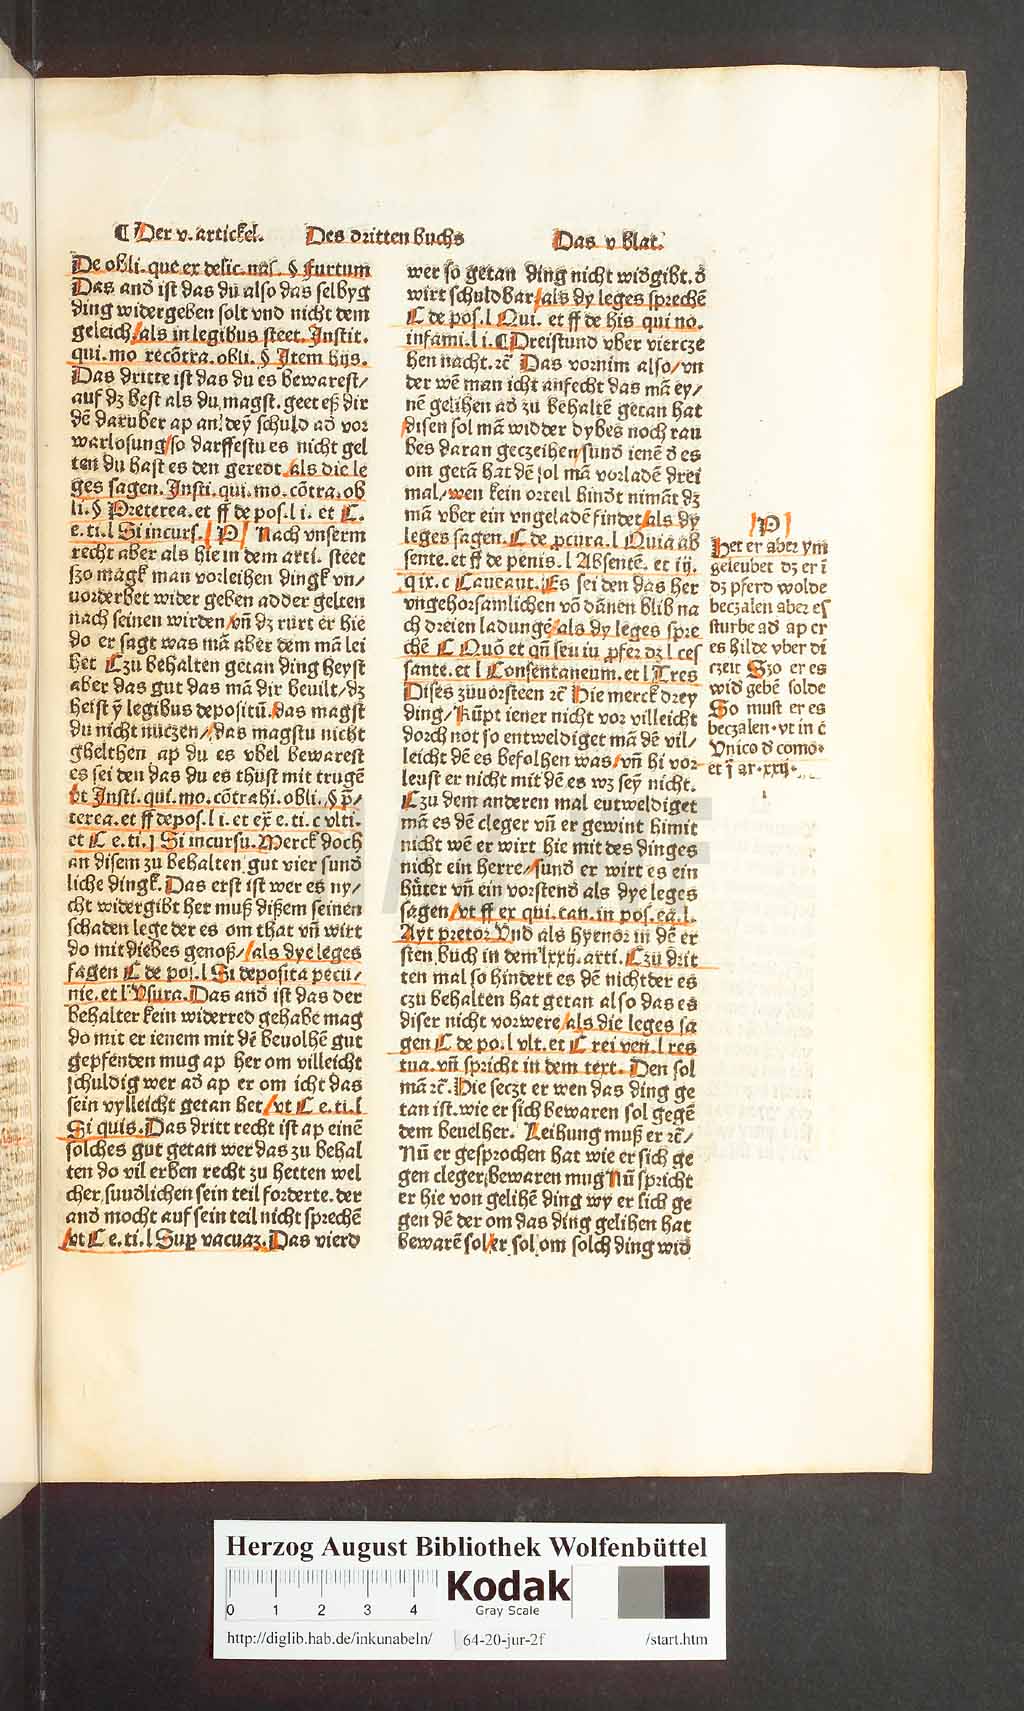 ¶ Der v. artickel. Des dritten buchs Das v blat.
De obli. que ex delic. nas. § Furtum
Das and ist das du also das selbyg
ding widergeben solt vnd nicht dem
geleich/als in legibus steet. Instit.
qui. mo recõtra. obli. § Item hijs.
Das dritte ist das du es bewarest/
auf dz best als du magst. geet eß dir
dẽ daruber ap an dey schuld ad vor
warlosung/so darffestu es nicht gel
ten du hast es den geredt/als die le
ges sagen. Insti. qui. mo. cõtra. ob
li. § Preterea. et ff de pos. l i. et C.
e. ti. l Si incurs. P Nach vnserm
recht aber als hie in dem arti. steet
szo magk man vorleihen dingk vn/
uorderbet wider geben adder gelten
nach seinen wirden/vñ dz rurt er hie
do er sagt was mã aber dem mã lei
het Czu behalten getan ding heyst
aber das gut das mã dir beuilt/dz
heist ỹ legibus depositũ. das magst
du nicht nuczen/das magstu nicht
ghelthen ap du es vbel bewarest
es sei den das du es thust mit trugẽ
vt Insti. qui. mo. cõtrahi. obli. § p̃/
terea. et ff depos. l i. et ex̃ e. ti. c vlti.
et C e. ti. l Si incursu. Merck doch
an disem zu behalten gut vier sund
liche dingk. Das erst ist wer es ny/
cht widergibt her muß dißem seinen
schaden lege der es om that vñ wirt
do mit diebes genoß/als dye leges
sagen C de pos. l Si deposita pecu/
nie. et l Vsura. Das and ist das der
behalter kein widerred gehabe mag
do mit er ienem mit dẽ beuolhẽ gut
gepfenden mug ap her om villeicht
schuldig wer ad ap er om icht das
sein vylleicht getan het/vt C e. ti. l
Si quis. Das dritt recht ist ap einẽ
solches gut getan wer das zu behal
ten do vil erben recht zu hetten wel
cher suudlichen sein teil forderte. der
and mocht auf sein teil nicht sprechẽ
vt C e. ti. l Sup vacuaz. Das vierd
wer so getan ding nicht widgibt. d
wirt schuldbar/als dy leges sprechẽ
C de pos. l Qui. et ff de his qui no.
infami. l i. ¶ Dreistund vber viercze
hen nacht. rc̃ Das vornim also/vn
der wẽ man icht anfecht das mã ey/
nẽ gelihen ad zu behaltẽ getan hat
disen sol mã widder dybes noch rau
bes daran geczeihen/sund ienẽ d es
om getã hat dẽ sol mã vorladẽ drei
mal/wen kein orteil bindt nimãt dz
mã vber ein vngeladẽ findet/als dy
leges sagen. C de pcura. l Quia ab
sente. et ff de penis. l Absentẽ. et iij.
q ix. c Caueant. Es sei den das her
vngehorsamlichen võ dãnen blib na
ch dreien ladunge/als dy leges spre
chẽ C Quõ et qñ seu iu pfer dz l ces
sante. et l Consentaneum. et l Tres
Dises zuuorsteen rc̃ Hie merck drey
ding/Kũpt iener nicht vor villeicht
dorch not so entweldiget mã dẽ vil/
leicht dẽ es befolhen was/vñ hi vor
leust er nicht mit dẽ es wz sey nicht.
Czu dem anderen mal eutweldiget
mã es dẽ cleger vñ er gewint himit
nicht wẽ er wirt hie mit des dinges
nicht ein herre/sund er wirt es ein
hüter vñ ein vorstend als dye leges
sagen/vt ff ex qui. can. in pos. eã. l.
Ayt pretor Vnd als hyenor in dẽ er
sten buch in dem lxxij. arti. Czu drit
ten mal so hindert es dẽ nicht der es
czu behalten hat getan also das es
diser nicht vorwere/als die leges sa
gen C de po. l vlt. et C rei ven. l res
tua. vñ spricht in dem text. Den sol
mã rc̃. Hie seczt er wen das ding ge
tan ist. wie er sich bewaren sol gegẽ
dem beuelher. Leihung muß er rc̃/
Nũ er gesprochen hat wie er sich ge
gen cleger bewaren mug Nũ spricht
er hie von gelihẽ ding wy er sich ge
gen dẽ der om das ding gelihen hat
bewarẽ sol/er sol om solch ding wid
P
Het er aber ym
geleubet dz er ĩ
dz pferd wolde
beczalen aber es
sturbe ad ap er
es hilde vber di
czeit Szo er es
wid gebẽ solde
So must er es
beczalen. vt in c̃
Vnico d como.
et j̃ ar. xxij.
Herzog August Bibliothek Wolfenbüttel
0 1 2 3 4
Kodak
Gray Scale
http://diglib.hab.de/inkunabeln/ 64-20-jur-2f /start.htm